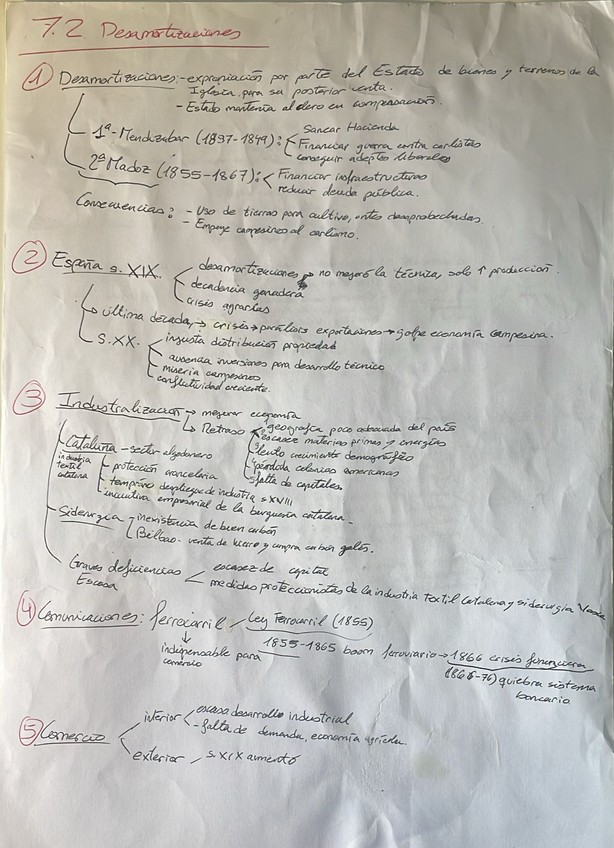 7.2 Desamortizaciones
① Desamortizaciones:- expropiación por parte del Estado de bienes y terrenos de la
Iglesia para su posterior venta.
- Estado mantenía al clero en compensación.
1ª- Mendizabar (1837-1849): Sanear Hacienda
Financiar guerra contra carlistas
conseguir adeptos liberales
2ª Madoz (1855-1867): Financiar infraestructuras
reducir deuda pública.
Consecuencias: - Uso de tierras para cultivo, antes desaprobechadas.
- Empuje campesinos al carlismo.
② España s. XIX. desamortizaciones → no mejoró la técnica, solo ↑ producción.
decadencia ganadera
crisis agrarias
última década → crisis → parálisis exportaciones → golpe economía campesina.
S.XX. injusta distribución propiedad
ausencia inversiones para desarrollo técnico
miseria campesinos
conflictividad creciente.
③ Industralización → mejorar economía
Retraso geografía poco adecuada del país
escasez materias primas y energías
lento crecimiento demográfico
pérdida colonias americanas
falta de capitales.
Cataluña - sector algodonero
industria textil catalana
protección arancelaria
temprano despliegue de industria s XVIII
iniciativa empresarial de la burguesía catalana.
Siderurgia - inexistencia de buen carbón
Bilbao - venta de hierro y compra carbón galés.
Graves deficiencias escasez de capital
Escasa medidas proteccionistas de la industria textil catalana y siderurgia Vasca
④ Comunicaciones: ferrocarril Ley Ferrocarril (1855)
indispensable para comercio
1855-1865 boom ferroviario → 1866 crisis financiera
(1866-76) quiebra sistema
bancario
⑤ Comercio interior escaso desarrollo industrial
- falta de demanda, economía agrícola.
exterior s.XIX aumentó